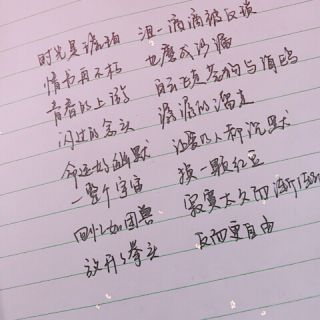 时光是琥珀 泪一滴滴被反锁
情书再不朽 也磨成沙漏
青春的上游 白云飞走苍狗与海鸥
闪过的念头 潺潺的溜走
命运好幽默 让爱的人都沉默
一整个宇宙 换一颗红豆
回忆如困兽 寂寞太久而渐渐
放开了拳头 反而更自由